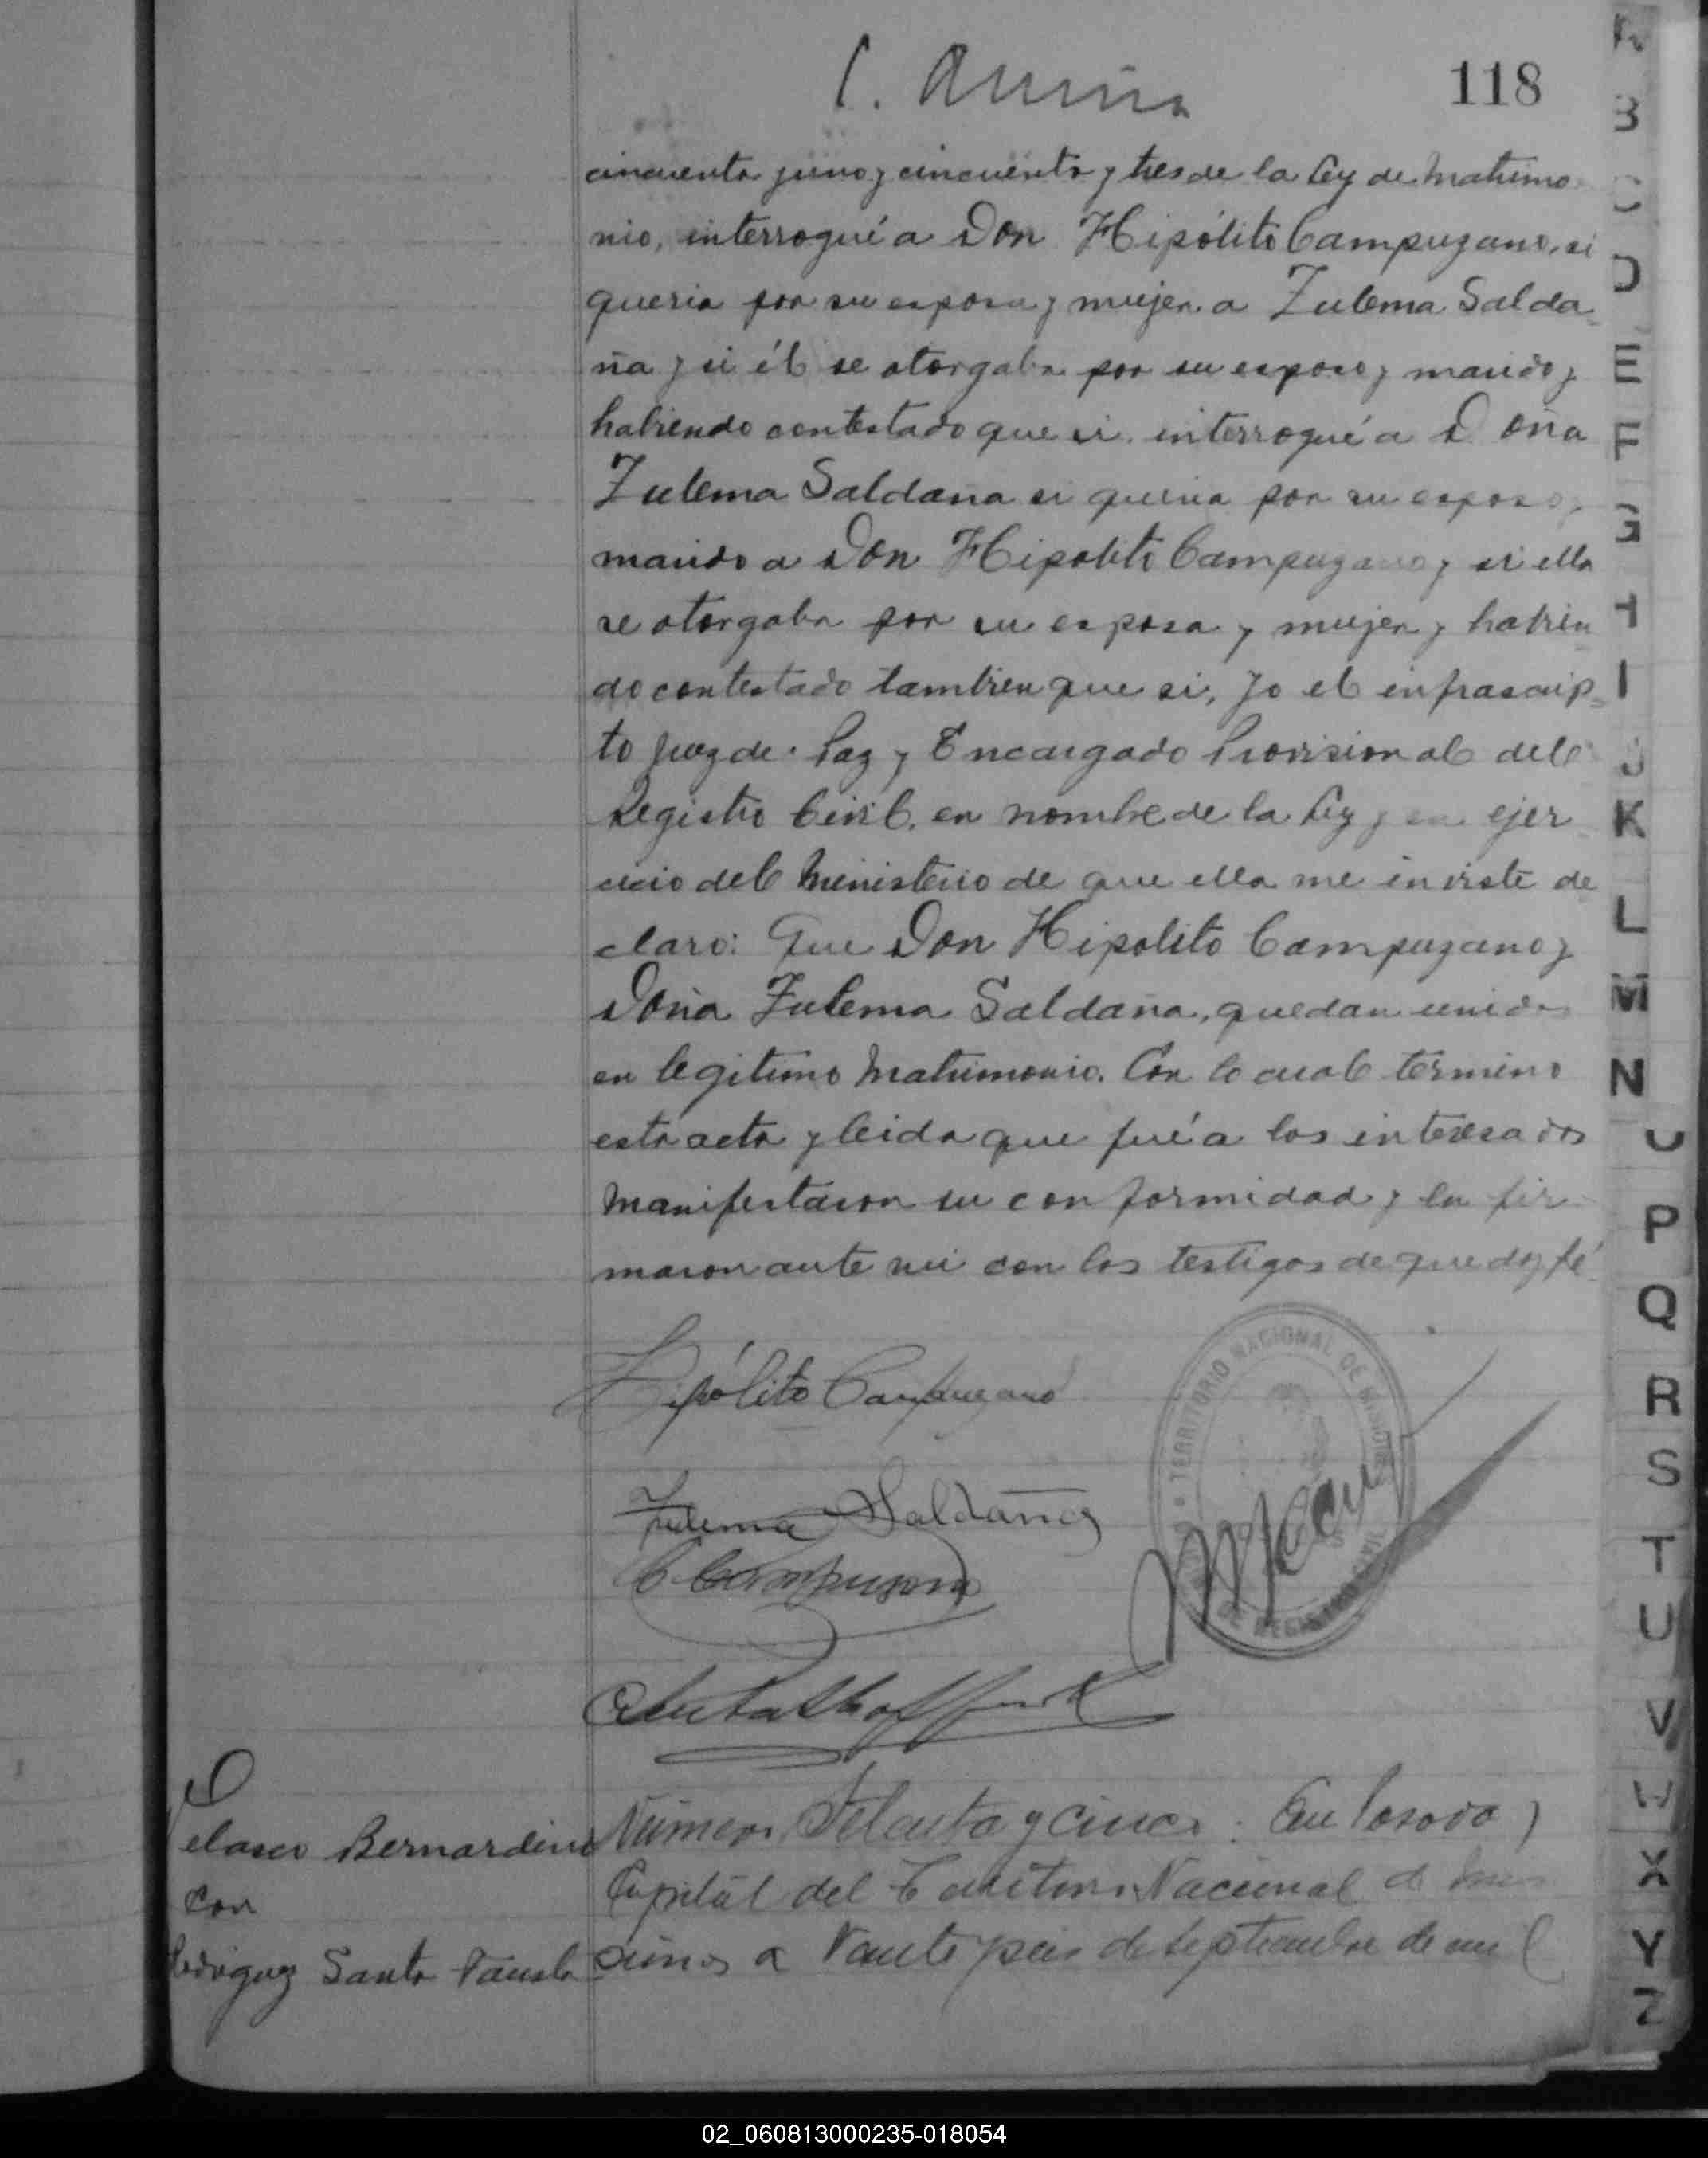 118
cincuenta y uno y cincuenta y tres de la Ley de Matrimo
nio, interrogué a Don Hipólito Campuzano, si
queria por su esposa y mujer a Zulema Salda-
ña y si él se otorgaba por su esposo y marido y
habiendo contestado que si, interrogué a Doña
Zulema Saldaña si queria por su esposo y
marido a Don Hipolito Campuzano y si ella
se otorgaba por su esposa y mujer y habien
do contestado tambien que si, yo el infrascrip-
to Juez de Paz y Encargado Provisional del
Registro Civil, en nombre de la Ley y en ejer
cicio del Ministerio de que ella me inviste de
claro: Que Don Hipolito Campuzano y
Doña Zulema Saldaña, quedan unidos
en legitimo Matrimonio. Con lo cual termino
esta acta y leida que fué a los interesados
manifestaron su conformidad y la fir
maron ante mi con los testigos de que doy fé
Hipólito Campuzano
TERRITORIO NACIONAL DE MISIONES
DE REGISTRO CIVIL
Zulema Saldaña
C Campuzano
Número Setenta y cinco: En Posada y
Velasco Bernardino
Capital del Territorio Nacional de Mis
con
ciones a Veinte y seis de Septiembre de mil
Rodriguez Santa Fausta
A
B
C
D
E
F
G
H
I
J
K
L
M
N
O
P
Q
R
S
T
U
V
W
X
Y
Z
02_060813000235-018054